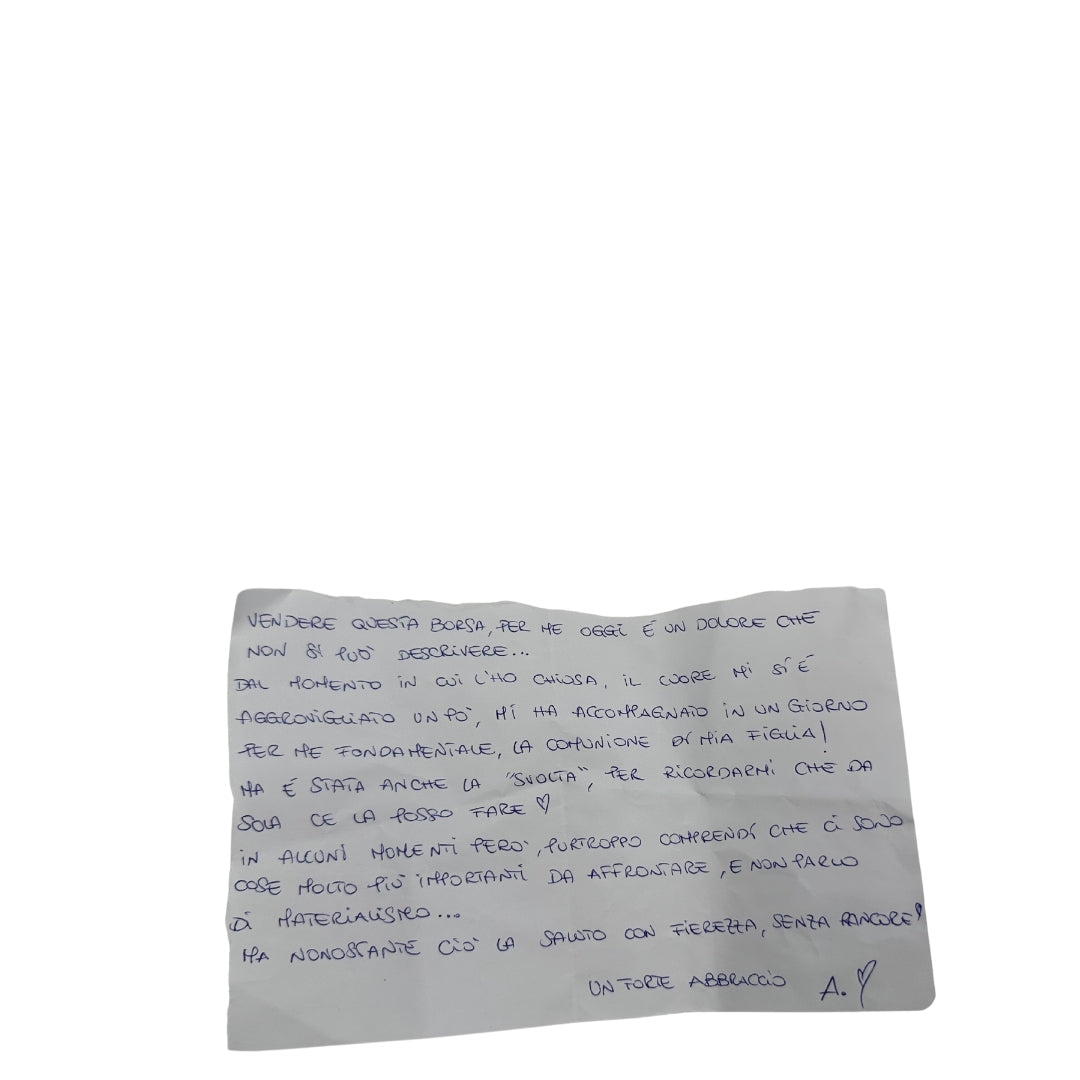 VENDERE QUESTA BORSA, PER ME OGGI É UN DOLORE CHE
NON SI PUÒ DESCRIVERE...
DAL MOMENTO IN CUI L'HO CHIUSA, IL CUORE MI SI É
AGGROVIGLIATO UN PO', MI HA ACCOMPAGNATO IN UN GIORNO
PER ME FONDAMENTALE, LA COMUNIONE DI MIA FIGLIA!
MA É STATA ANCHE LA "SVOLTA", PER RICORDARMI CHE DA
SOLA CE LA POSSO FARE ♡
IN ALCUNI MOMENTI PERÒ, PURTROPPO COMPRENDI CHE CI SONO
COSE MOLTO PIÙ IMPORTANTI DA AFFRONTARE, E NON PARLO
DI MATERIALISMO...
MA NONOSTANTE CIÒ LA SALUTO CON FIEREZZA, SENZA RANCORE!
UN FORTE ABBRACCIO A. ♡